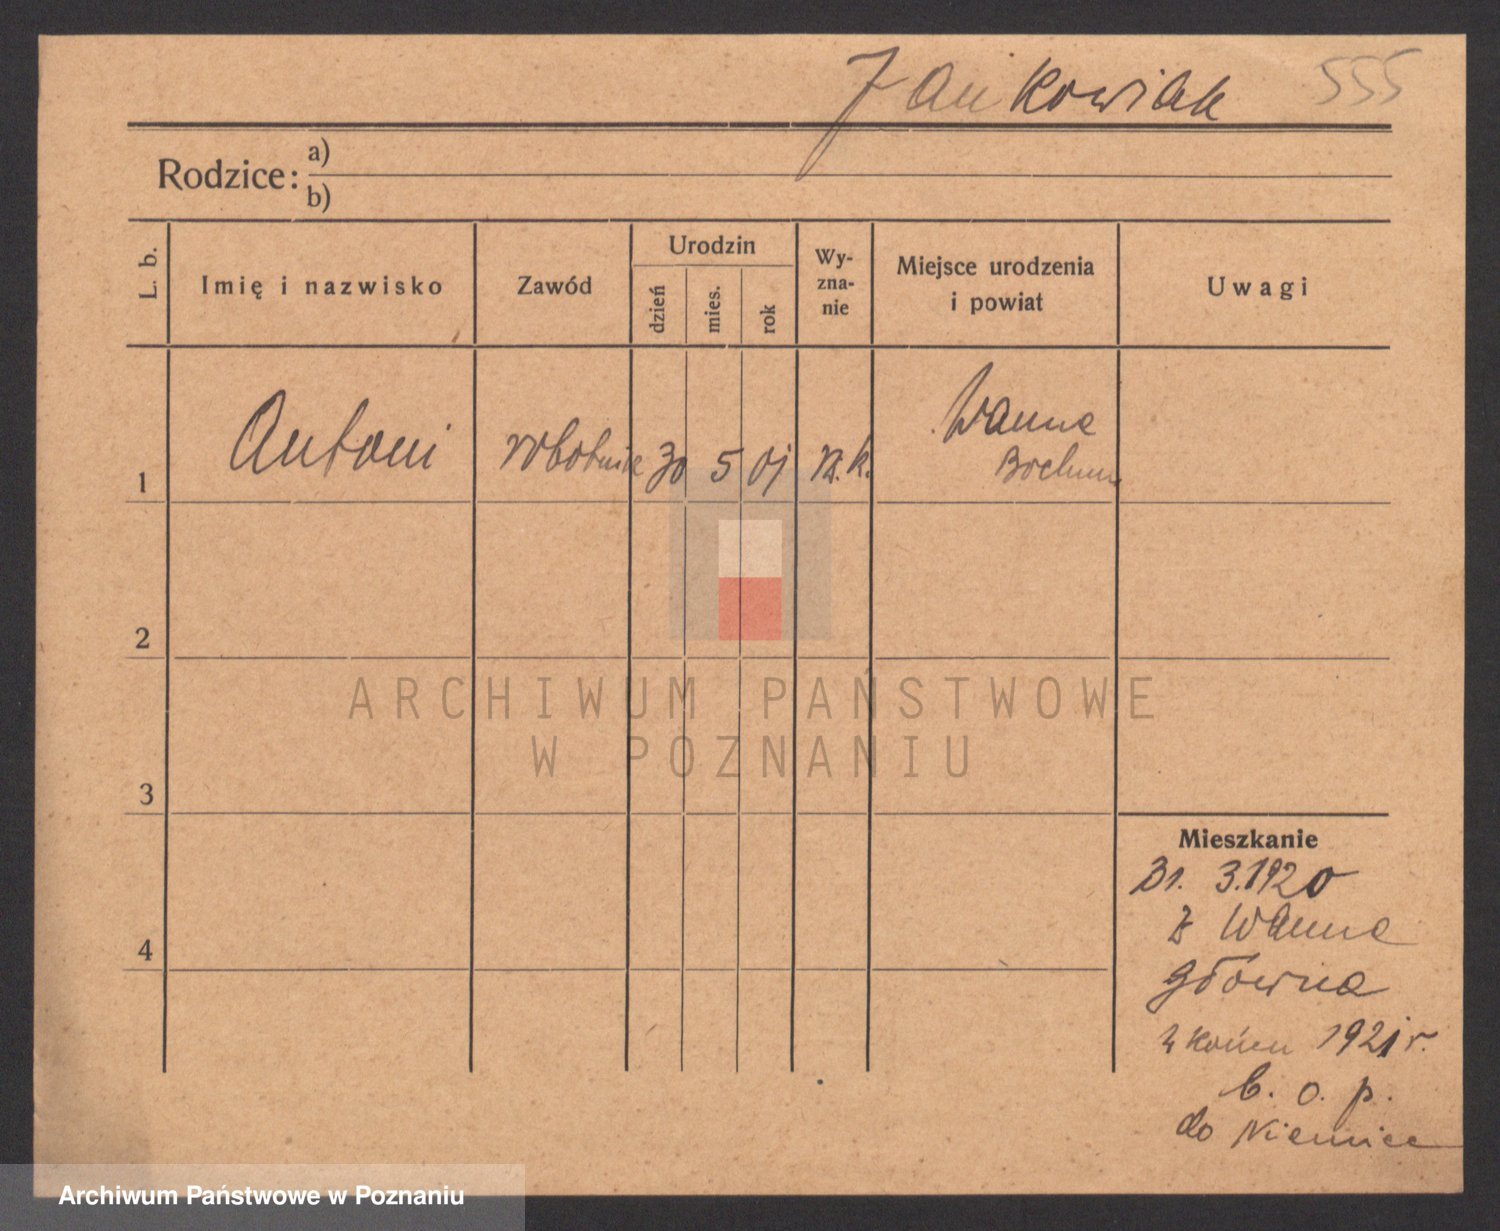 Jankowiak 555
Rodzice: a)
b)
L. b.
Imię i nazwisko
Zawód
Urodzin
dzień
mies.
rok
Wy-
zna-
nie
Miejsce urodzenia
i powiat
Uwagi
1 Antoni robotnik 30 5 01 rz. k. Wanne
Bochum
2
3
4
Mieszkanie
31. 3. 1920
z Wanne
Główna
z końcu 1921 r.
b. o. p.
do Niemiec
ARCHIWUM PAŃSTWOWE
W POZNANIU
Archiwum Państwowe w Poznaniu